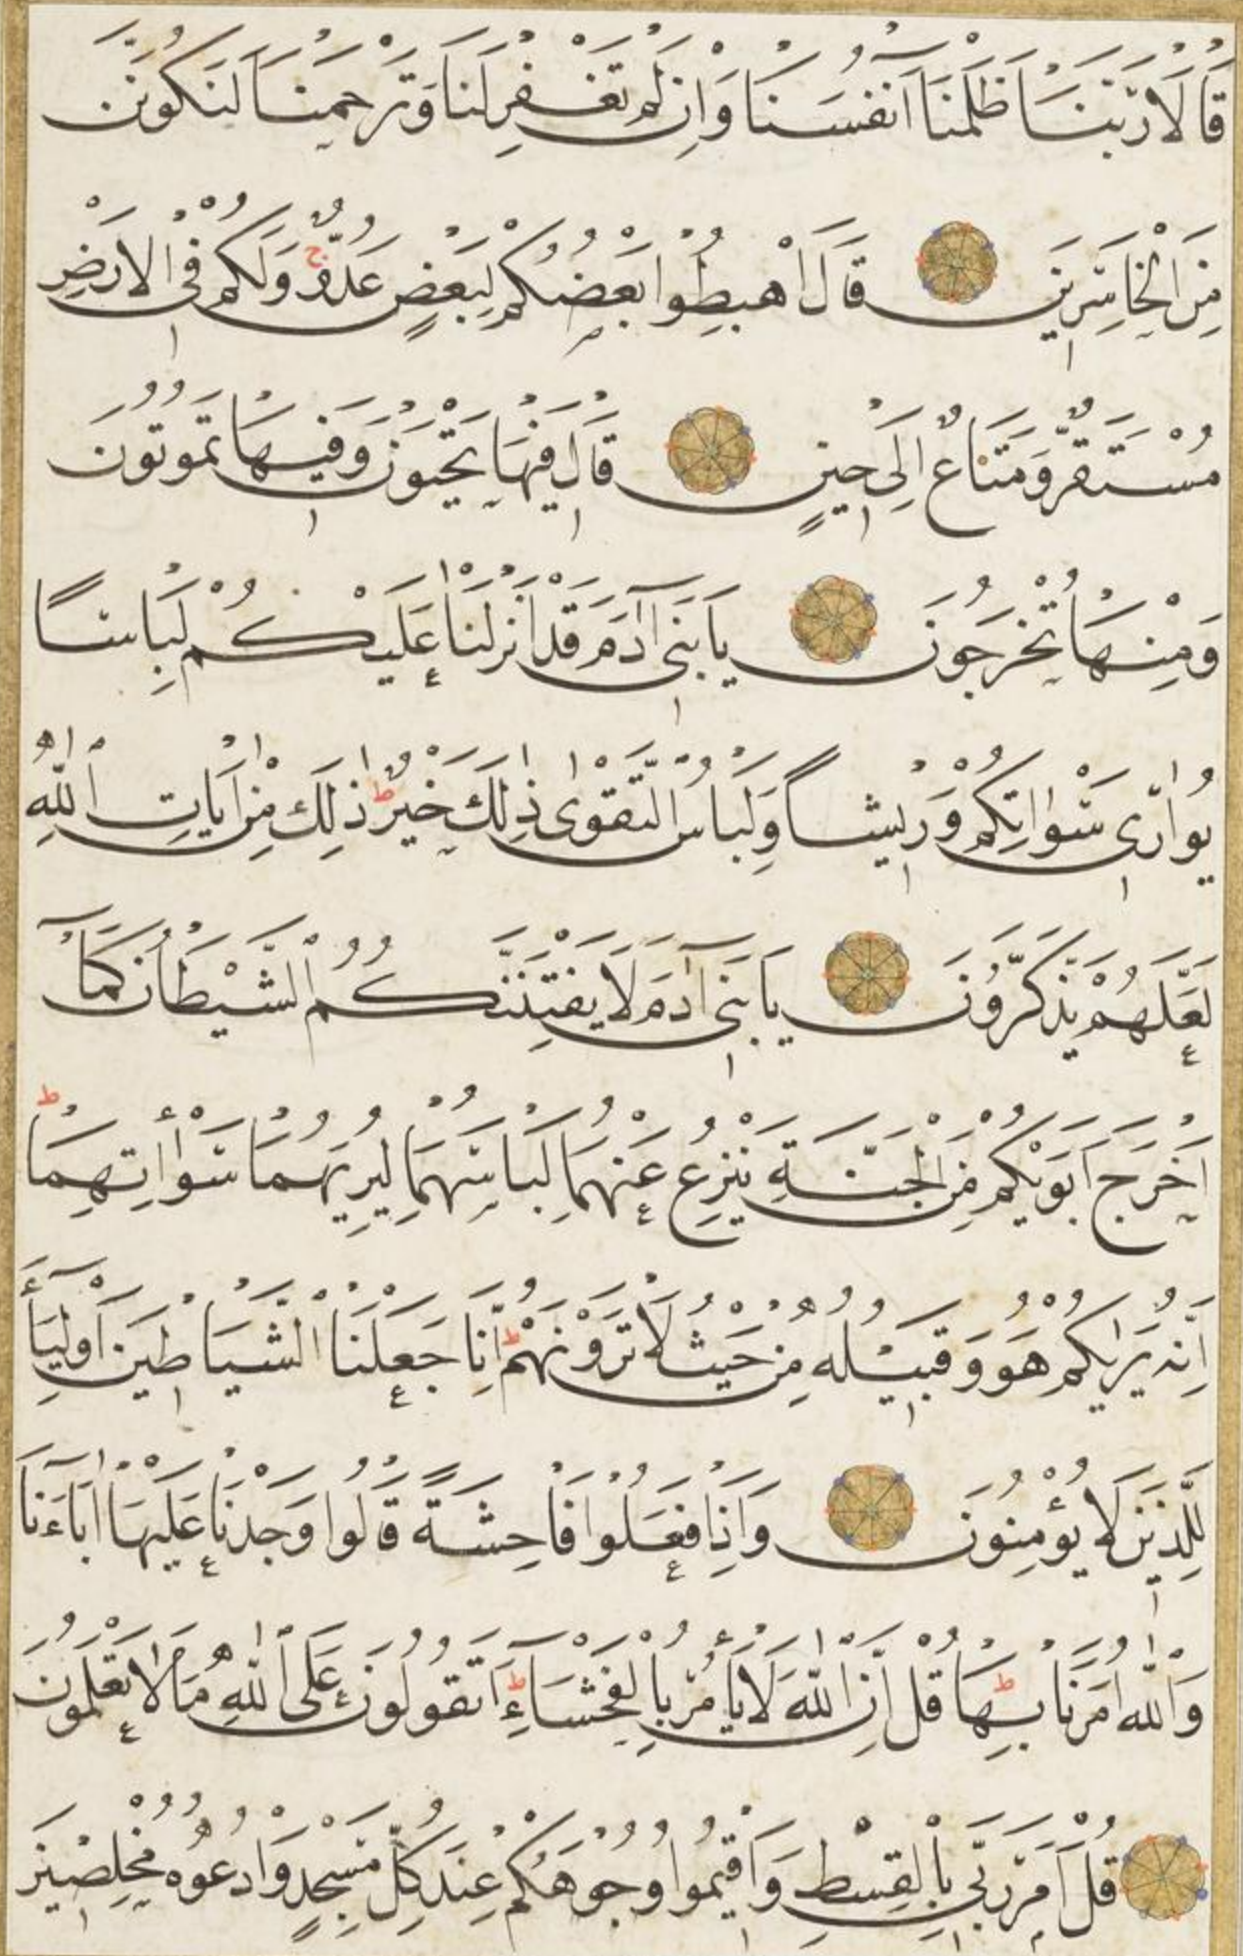 قَالَا رَبَّنَا ظَلَمْنَا اَنْفُسَنَا وَاِنْ لَمْ تَغْفِرْ لَنَا وَتَرْحَمْنَا لَنَكُونَنَّ
مِنَ الْخَاسِرِينَ قَالَ اهْبِطُوا بَعْضُكُمْ لِبَعْضٍ عَدُوٌّ ج وَلَكُمْ فِي الْاَرْضِ
مُسْتَقَرٌّ وَمَتَاعٌ اِلَى حِينٍ قَالَ فِيهَا تَحْيَوْنَ وَفِيهَا تَمُوتُونَ
وَمِنْهَا تُخْرَجُونَ يَا بَنِي آدَمَ قَدْ اَنْزَلْنَا عَلَيْكُمْ لِبَاسًا
يُوَارِي سَوْاٰتِكُمْ وَرِيشًا وَلِبَاسُ التَّقْوٰى ذٰلِكَ خَيْرٌ ط ذٰلِكَ مِنْ اٰيَاتِ اللّٰهِ
لَعَلَّهُمْ يَذَّكَّرُونَ يَا بَنِي آدَمَ لَا يَفْتِنَنَّكُمُ الشَّيْطَانُ كَمَا
اَخْرَجَ اَبَوَيْكُمْ مِنَ الْجَنَّةِ يَنْزِعُ عَنْهُمَا لِبَاسَهُمَا لِيُرِيَهُمَا سَوْاٰتِهِمَا ط
اِنَّهُ يَرٰيكُمْ هُوَ وَقَبِيلُهُ مِنْ حَيْثُ لَا تَرَوْنَهُمْ ط اِنَّا جَعَلْنَا الشَّيَاطِينَ اَوْلِيَاءَ
لِلَّذِينَ لَا يُؤْمِنُونَ وَاِذَا فَعَلُوا فَاحِشَةً قَالُوا وَجَدْنَا عَلَيْهَا اٰبَاءَنَا
وَاللّٰهُ اَمَرَنَا بِهَا ط قُلْ اِنَّ اللّٰهَ لَا يَأْمُرُ بِالْفَحْشَاءِ ط اَتَقُولُونَ عَلَى اللّٰهِ مَا لَا تَعْلَمُونَ
قُلْ اَمَرَ رَبِّي بِالْقِسْطِ وَاَقِيمُوا وُجُوهَكُمْ عِنْدَ كُلِّ مَسْجِدٍ وَادْعُوهُ مُخْلِصِينَ